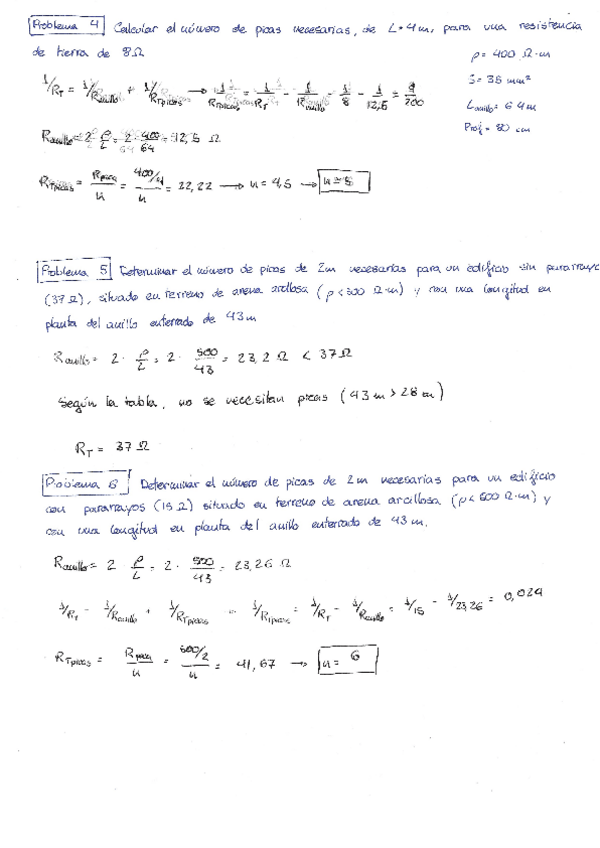 Problema 4 Calcular el número de picas necesarias, de L=4m, para una resistencia
de tierra de 8Ω
ρ= 400 Ω·m
S= 35 mm²
Lanillo= 64m
Prof= 80 cm
1/RT = 1/Ranillo + 1/RTpicas → 1/RTpicas = 1/RT - 1/Ranillo = 1/8 - 1/12,5 = 9/200
Ranillo= 2 ρ/L = 2· 400/64 = 12,5 Ω
RTpicas= Rpica/n = 400/4/n = 22,22 → n= 4,5 → n=5
Problema 5 Determinar el número de picas de 2m necesarias para un edificio sin pararrayos
(37 Ω), situado en terreno de arena arcillosa (ρ<500 Ω·m) y con una longitud en
planta del anillo enterrado de 43m
Ranillo= 2· ρ/L = 2· 500/43 = 23,2 Ω < 37Ω
Según la tabla, no se necesitan picas (43m > 28m)
RT = 37 Ω
Problema 6 Determinar el número de picas de 2m necesarias para un edificio
con pararrayos (15 Ω) situado en terreno de arena arcillosa (ρ<500 Ω·m) y
con una longitud en planta del anillo enterrado de 43m.
Ranillo= 2 ρ/L = 2· 500/43 = 23,26 Ω
1/RT = 1/Ranillo + 1/RTpicas → 1/RTpicas = 1/RT - 1/Ranillo = 1/15 - 1/23,26 = 0,024
RTpicas = Rpica/n = 500/2/n = 41,67 → n= 6